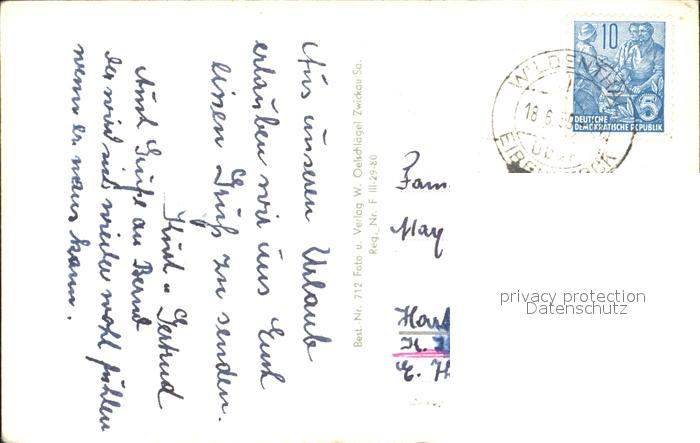 Aus unserem Urlaub
erlauben wir uns Euch
einen Gruß zu senden.
Kurt u. Gertrud
Auch Grüße an Bernd
der wird sich wieder wohl fühlen
wenn er naus kann.
Best.-Nr. 712 Foto u. Verlag W. Oelschlägel Zwickau Sa.
Reg. Nr. F III-29-80
10
DEUTSCHE
DEMOKRATISCHE REPUBLIK
5
WILDENTHAL
18.6.
über
EIBENSTOCK
Fam.
May
Hart
K.
E. H
privacy protection
Datenschutz